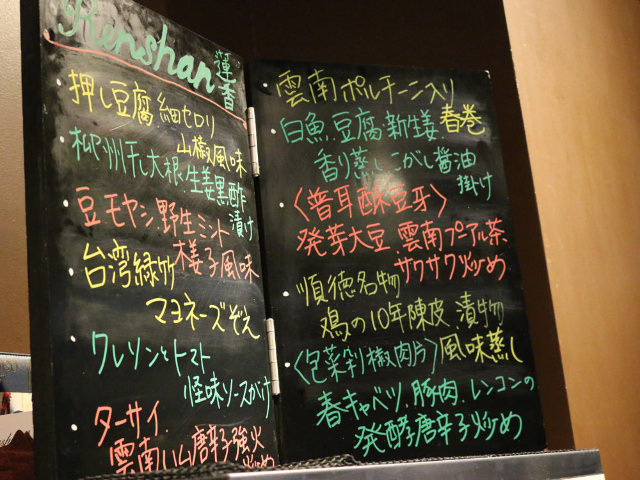 Renshan
蓮香
押し豆腐 細セロリ
山椒風味
柳州干し大根、生姜黒酢
漬け
豆モヤシ、野生ミント
台湾緑竹
マヨネーズぞえ
クレソンとトマト
怪味ソースがけ
ターサイ
雲南ハム唐辛子強火
炒め
雲南ポルチーニ入り
春巻
白魚、豆腐、新生姜
香り蒸し こがし醤油
掛け
〈普耳酥豆芽〉
発芽大豆 雲南プアル茶
サクサク炒め
順徳名物
鶏の10年陳皮、漬物
風味蒸し
〈包菜剁椒肉片〉
春キャベツ、豚肉、レンコンの
発酵唐辛子炒め